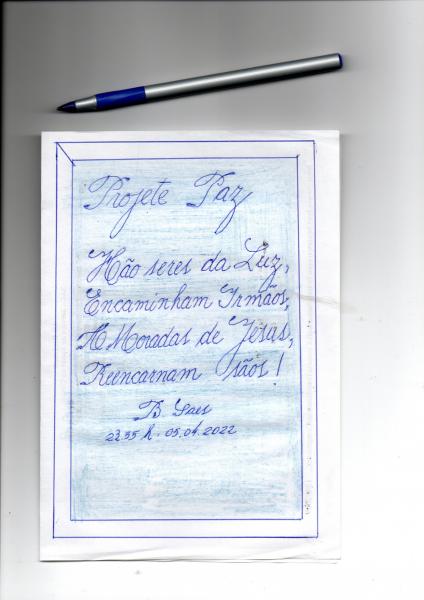 Projete Paz
Hão seres da Luz,
Encaminham Irmãos,
A Moradas de Jesus,
Reencarnam sãos!
h. 05.04.2022